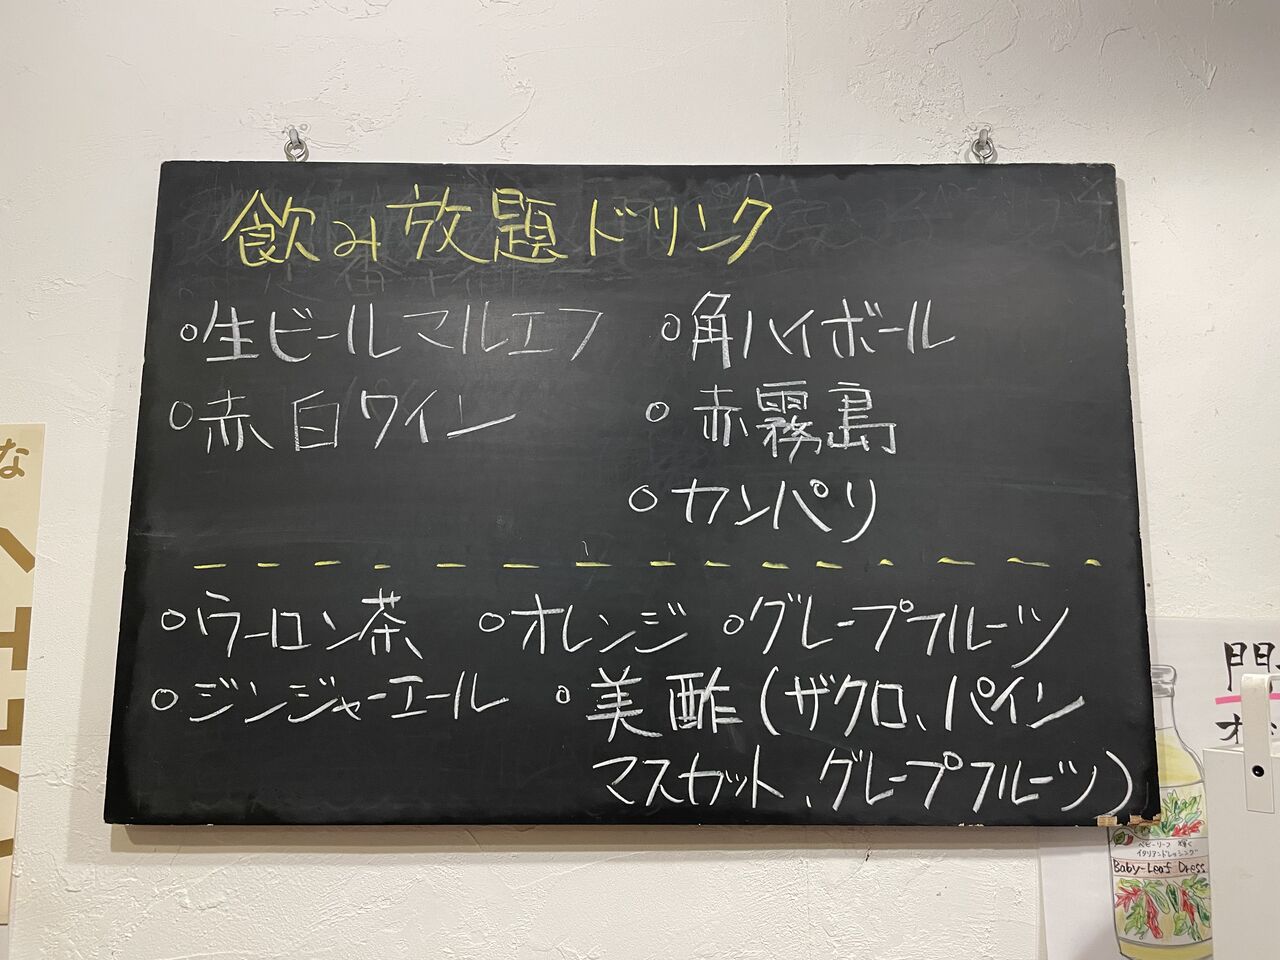 飲み放題ドリンク
○生ビールマルエフ ○角ハイボール
○赤白ワイン ○赤霧島
○カンパリ
○ウーロン茶 ○オレンジ ○グレープフルーツ
○ジンジャーエール ○美酢(ザクロ、パイン
マスカット、グレープフルーツ)
な
門
ベビーリーフ
イタリアンドレッシング
Baby-Leaf Dress